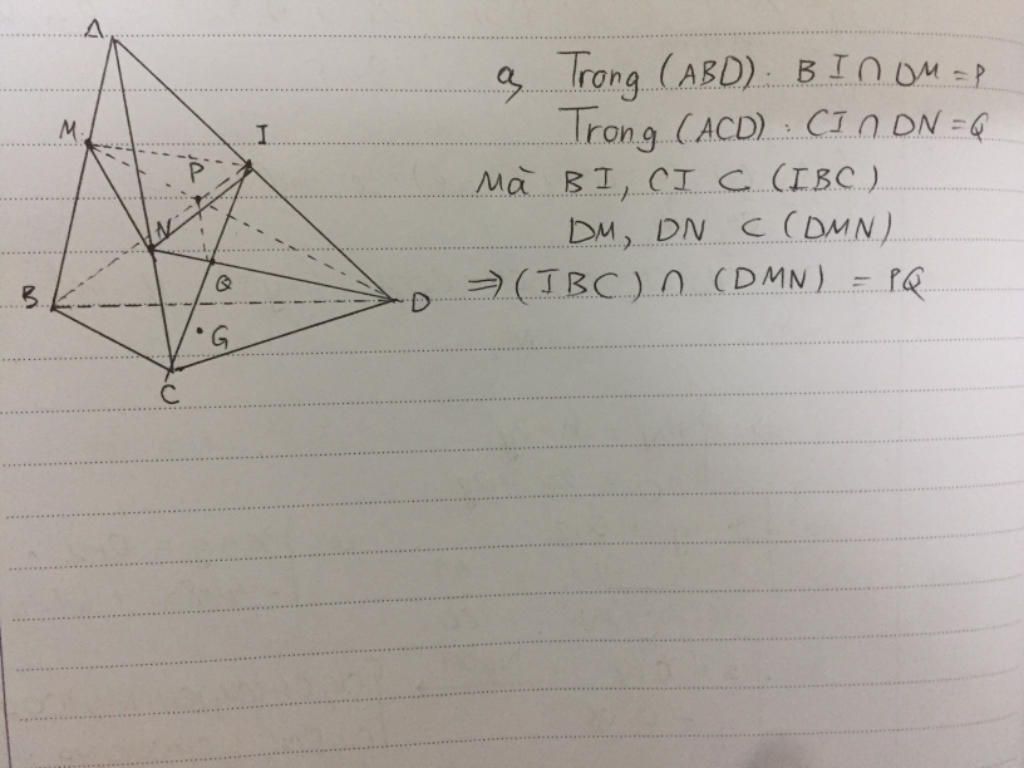 A
M
I
P
N
Q
B
D
G
C
a, Trong (ABD): BI ∩ DM = P
Trong (ACD): CI ∩ DN = Q
Mà BI, CI ⊂ (IBC)
DM, DN ⊂ (DMN)
⇒ (IBC) ∩ (DMN) = PQ